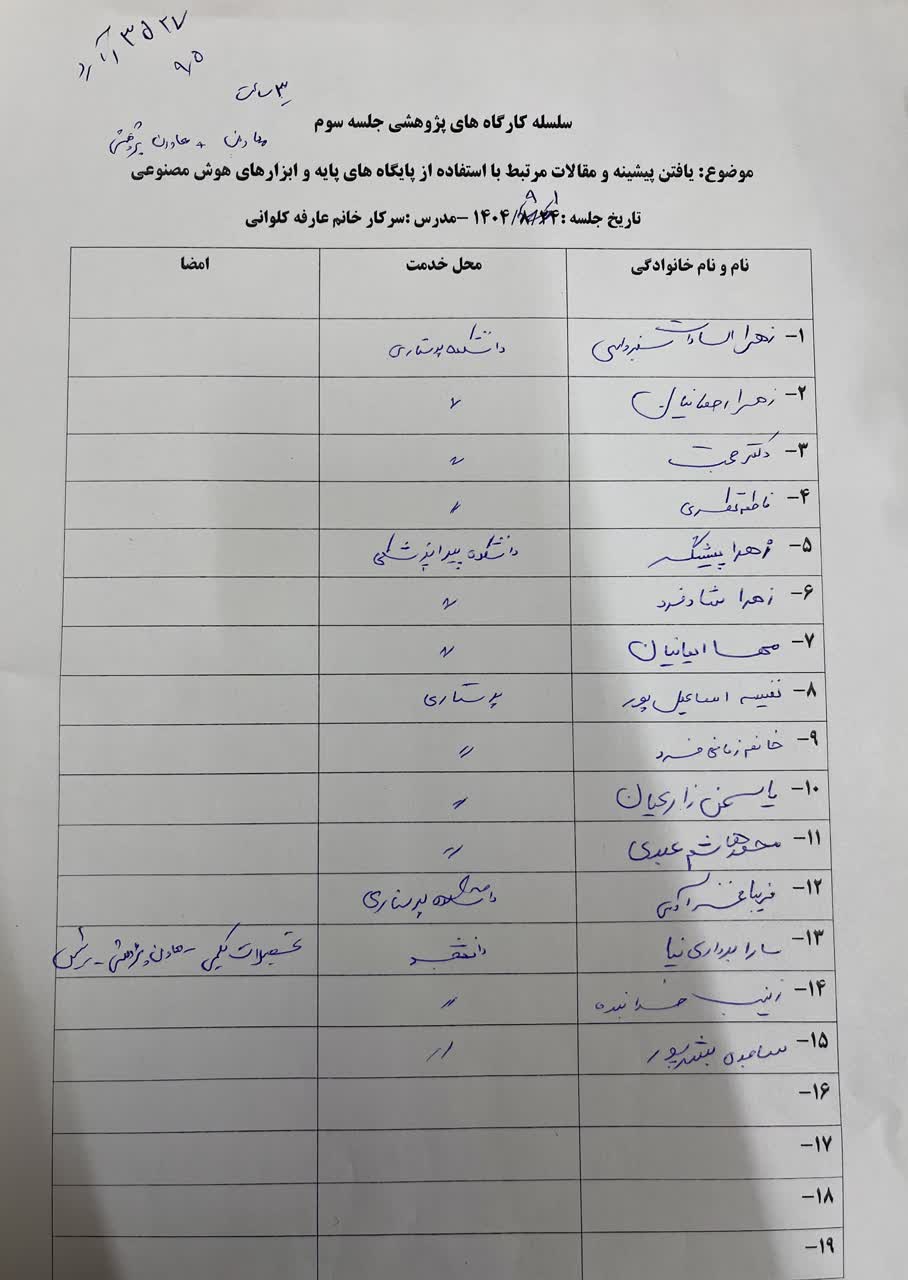 ۳ ساعت
سلسله کارگاه های پژوهشی جلسه سوم
معاون پژوهشی
موضوع: یافتن پیشینه و مقالات مرتبط با استفاده از پایگاه های پایه و ابزارهای هوش مصنوعی
تاریخ جلسه :۱۴۰۴/ –مدرس :سرکار خانم عارفه کلوانی
نام و نام خانوادگی محل خدمت امضا
۱- زهرا السادات دانشکده پرستاری
۲- زهرا 〃
۳- دکتر محبت 〃
۴- فاطمه 〃
۵- زهرا پیشگر دانشکده پیراپزشکی
۶- زهرا شادفرد 〃
۷- 〃
۸- نفیسه اسماعیل پور پرستاری
۹- خانم زمانی فرد 〃
۱۰- یاسمن زارعیان 〃
۱۱- محمدهاشم عبدی 〃
۱۲- فریبا دانشکده پرستاری
۱۳- سارا بردباری نیا تحصیلات تکمیلی - معاون پژوهشی -
۱۴- زینب 〃
۱۵- ساجده بشیرپور 〃
۱۶-
۱۷-
۱۸-
۱۹-